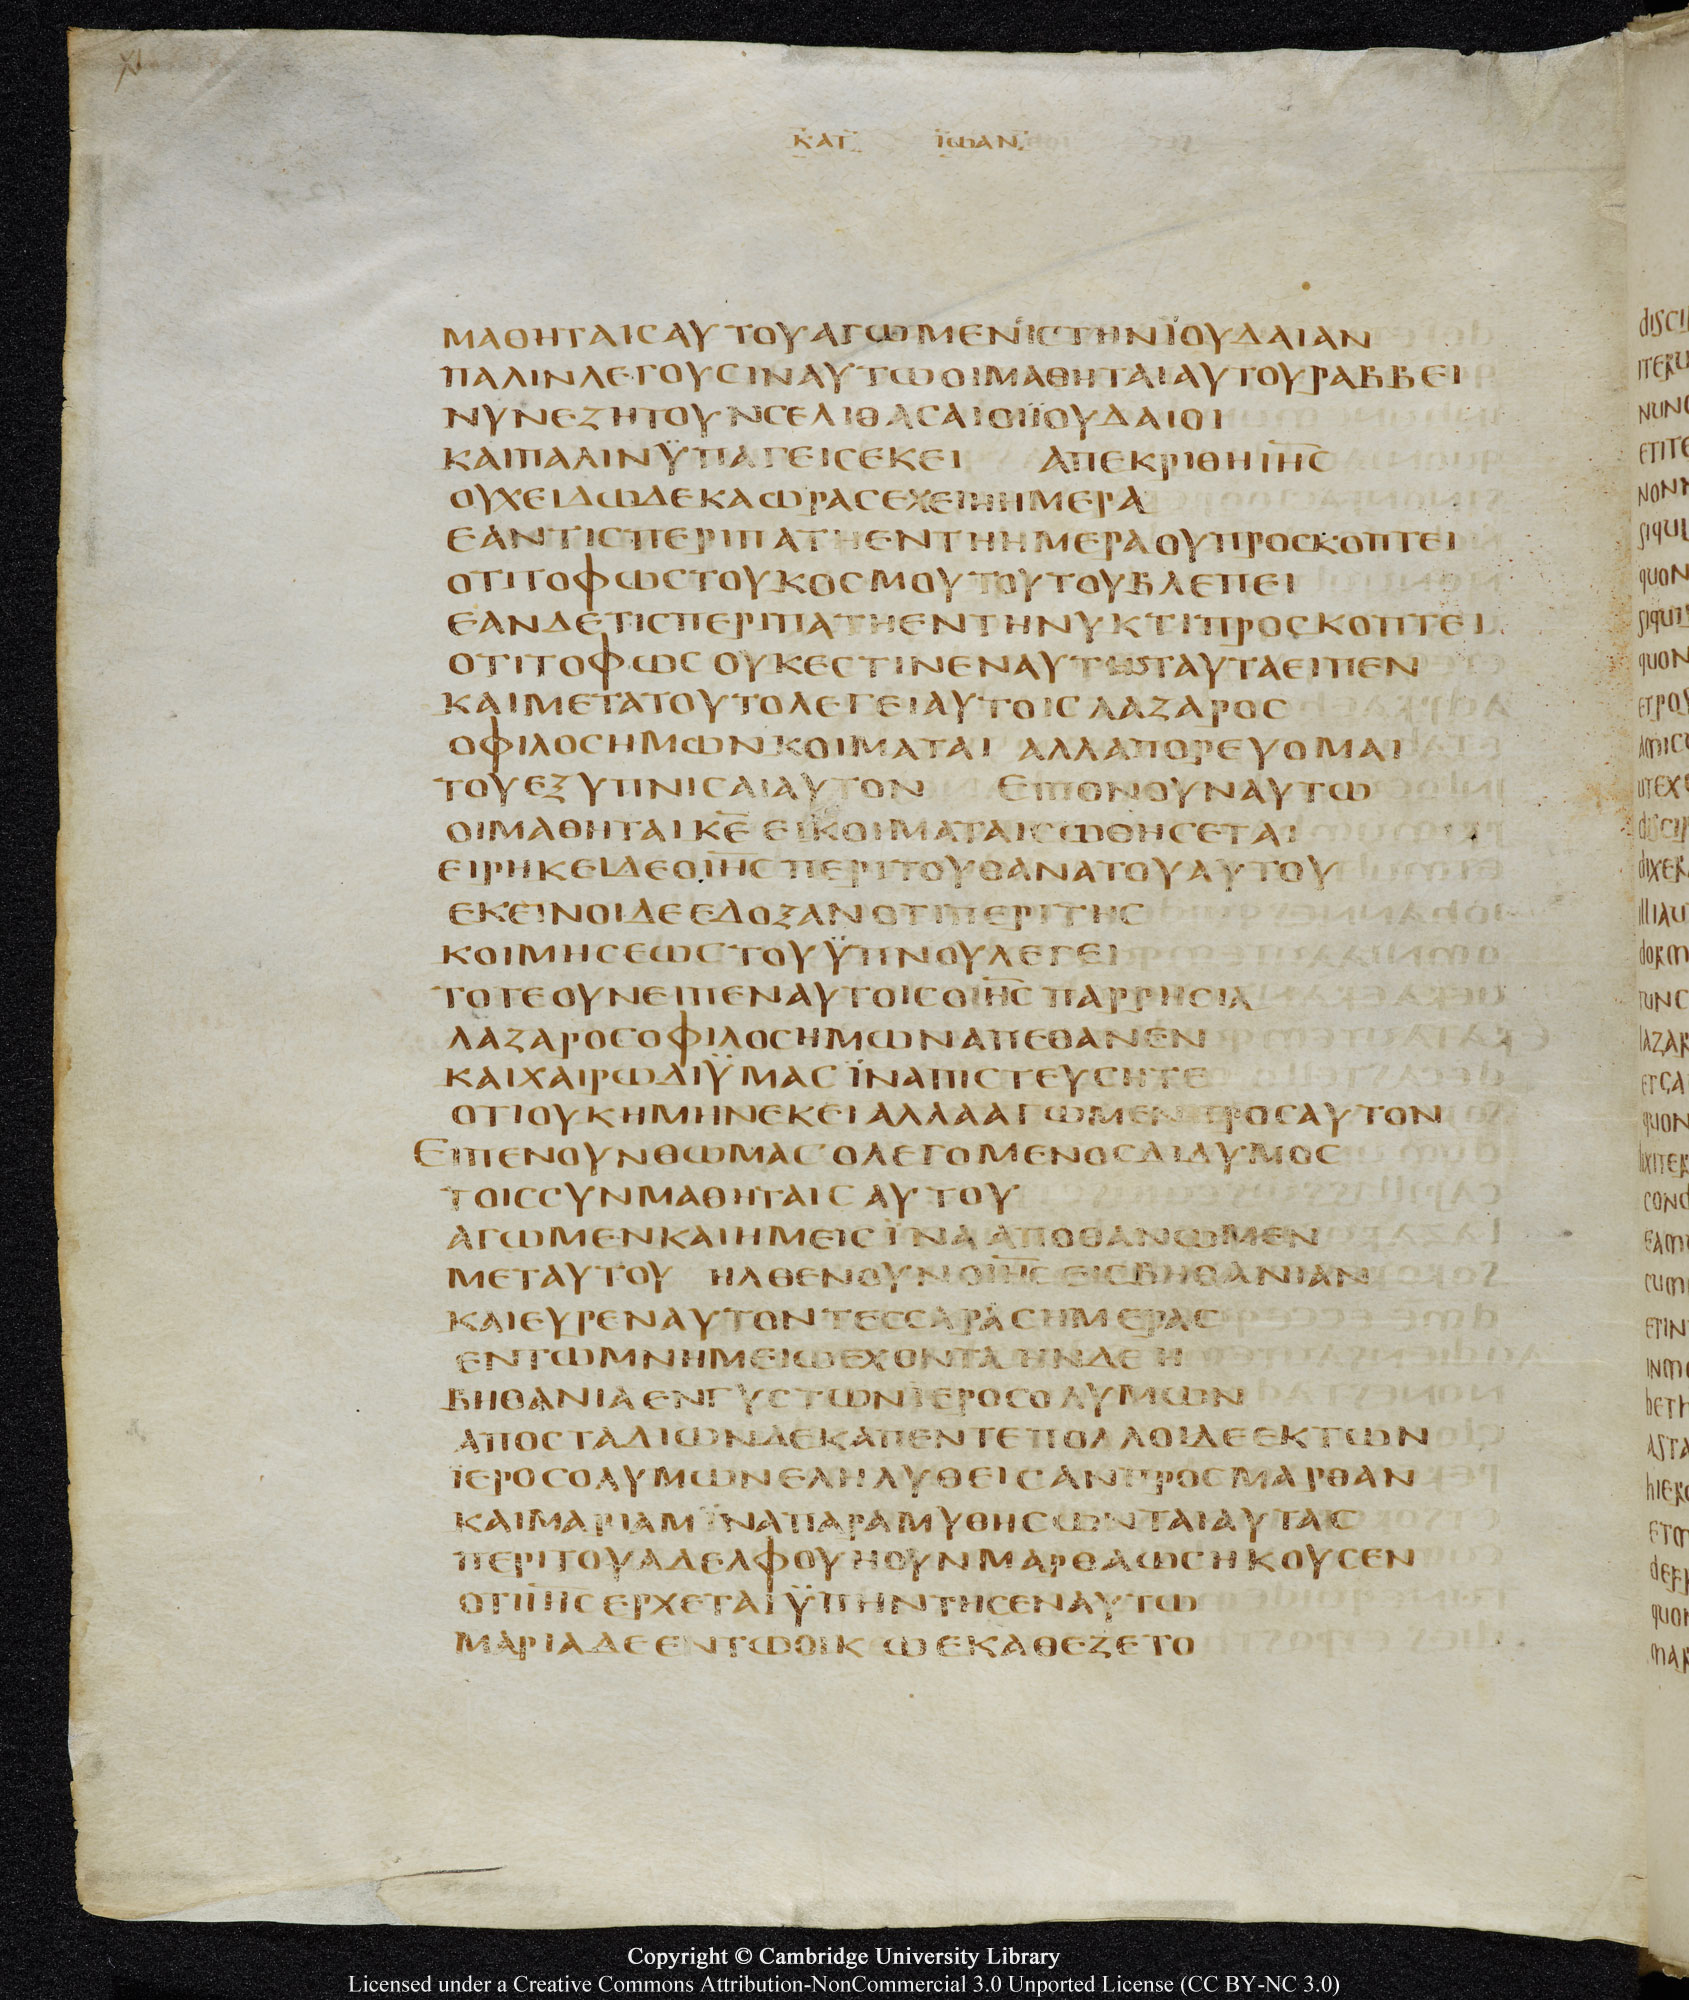 ΚΑΤ ΪΩΑΝ
ΜΑΘΗΤΑΙϹΑΥΤΟΥΑΓΩΜΕΝΪϹΤΗΝΪΟΥΔΑΙΑΝ
ΠΑΛΙΝΛΕΓΟΥϹΙΝΑΥΤΩΟΙΜΑΘΗΤΑΙΑΥΤΟΥΡΑΒΒΕΙ
ΝΥΝΕΖΗΤΟΥΝϹΕΛΙΘΑϹΑΙΟΙΪΟΥΔΑΙΟΙ
ΚΑΙΠΑΛΙΝΫΠΑΓΕΙϹΕΚΕΙ ΑΠΕΚΡΙΘΗΙΗϹ
ΟΥΧΕΙΔΩΔΕΚΑΩΡΑϹΕΧΕΙΗΗΜΕΡΑ
ΕΑΝΤΙϹΠΕΡΙΠΑΤΗΕΝΤΗΗΜΕΡΑΟΥΠΡΟϹΚΟΠΤΕΙ
ΟΤΙΤΟΦΩϹΤΟΥΚΟϹΜΟΥΤΟΥΤΟΥΒΛΕΠΕΙ
ΕΑΝΔΕΤΙϹΠΕΡΙΠΑΤΗΕΝΤΗΝΥΚΤΙΠΡΟϹΚΟΠΤΕΙ
ΟΤΙΤΟΦΩϹΟΥΚΕϹΤΙΝΕΝΑΥΤΩ ΤΑΥΤΑΕΙΠΕΝ
ΚΑΙΜΕΤΑΤΟΥΤΟΛΕΓΕΙΑΥΤΟΙϹ ΛΑΖΑΡΟϹ
ΟΦΙΛΟϹΗΜΩΝΚΟΙΜΑΤΑΙ ΑΛΛΑΠΟΡΕΥΟΜΑΙ
ΤΟΥΕΞΥΠΝΙϹΑΙΑΥΤΟΝ ΕΙΠΟΝΟΥΝΑΥΤΩ
ΟΙΜΑΘΗΤΑΙΚΕ ΕΙΚΟΙΜΑΤΑΙϹΩΘΗϹΕΤΑΙ
ΕΙΡΗΚΕΙΔΕΟΙΗϹΠΕΡΙΤΟΥΘΑΝΑΤΟΥΑΥΤΟΥ
ΕΚΕΙΝΟΙΔΕΕΔΟΞΑΝΟΤΙΠΕΡΙΤΗϹ
ΚΟΙΜΗϹΕΩϹΤΟΥΫΠΝΟΥΛΕΓΕΙ
ΤΟΤΕΟΥΝΕΙΠΕΝΑΥΤΟΙϹΟΙΗϹ ΠΑΡΡΗϹΙΑ
ΛΑΖΑΡΟϹΟΦΙΛΟϹΗΜΩΝΑΠΕΘΑΝΕΝ
ΚΑΙΧΑΙΡΩΔΙΫΜΑϹ ΪΝΑΠΙϹΤΕΥϹΗΤΕ
ΟΤΙΟΥΚΗΜΗΝΕΚΕΙΑΛΛΑΑΓΩΜΕΝΠΡΟϹΑΥΤΟΝ
ΕΙΠΕΝΟΥΝΘΩΜΑϹΟΛΕΓΟΜΕΝΟϹΔΙΔΥΜΟϹ
ΤΟΙϹϹΥΝΜΑΘΗΤΑΙϹΑΥΤΟΥ
ΑΓΩΜΕΝΚΑΙΗΜΕΙϹΪΝΑΑΠΟΘΑΝΩΜΕΝ
ΜΕΤΑΥΤΟΥ ΗΛΘΕΝΟΥΝΟΙΗϹ ΕΙϹΒΗΘΑΝΙΑΝ
ΚΑΙΕΥΡΕΝΑΥΤΟΝΤΕϹϹΑΡΑϹΗΜΕΡΑϹ
ΕΝΤΩΜΝΗΜΕΙΩΕΧΟΝΤΑ ΗΝΔΕ Η
ΒΗΘΑΝΙΑΕΝΓΥϹΤΩΝΪΕΡΟϹΟΛΥΜΩΝ
ΑΠΟϹΤΑΔΙΩΝΔΕΚΑΠΕΝΤΕΠΟΛΛΟΙΔΕΕΚΤΩΝ
ΪΕΡΟϹΟΛΥΜΩΝΕΛΗΛΥΘΕΙϹΑΝΠΡΟϹΜΑΡΘΑΝ
ΚΑΙΜΑΡΙΑΜ ΪΝΑΠΑΡΑΜΥΘΗϹΩΝΤΑΙΑΥΤΑϹ
ΠΕΡΙΤΟΥΑΔΕΛΦΟΥΗΟΥΝΜΑΡΘΑΩϹΗΚΟΥϹΕΝ
ΟΤΙΙΗϹ ΕΡΧΕΤΑΙΫΠΗΝΤΗϹΕΝΑΥΤΩ
ΜΑΡΙΑΔΕΕΝΤΩΟΙΚΩΕΚΑΘΕΖΕΤΟ
Copyright © Cambridge University Library
Licensed under a Creative Commons Attribution-NonCommercial 3.0 Unported License (CC BY-NC 3.0)